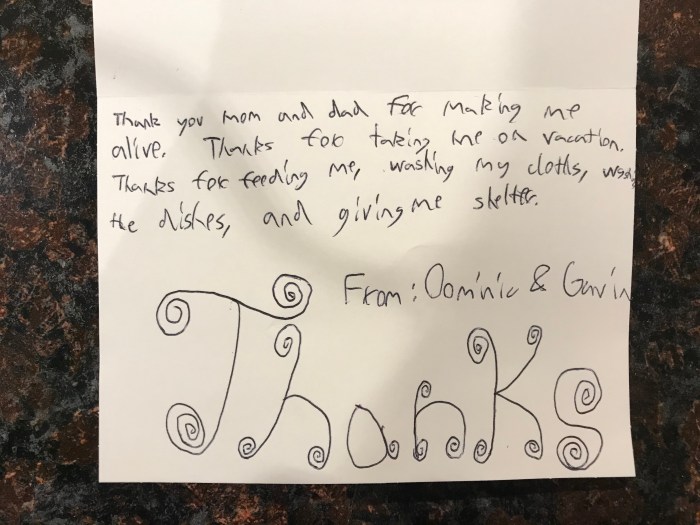 Thank you mom and dad for making me
alive. Thanks for taking me on vacation.
Thanks for feeding me, washing my cloths, washing
the dishes, and giving me shelter.
From: Dominic & Gavin
Thanks